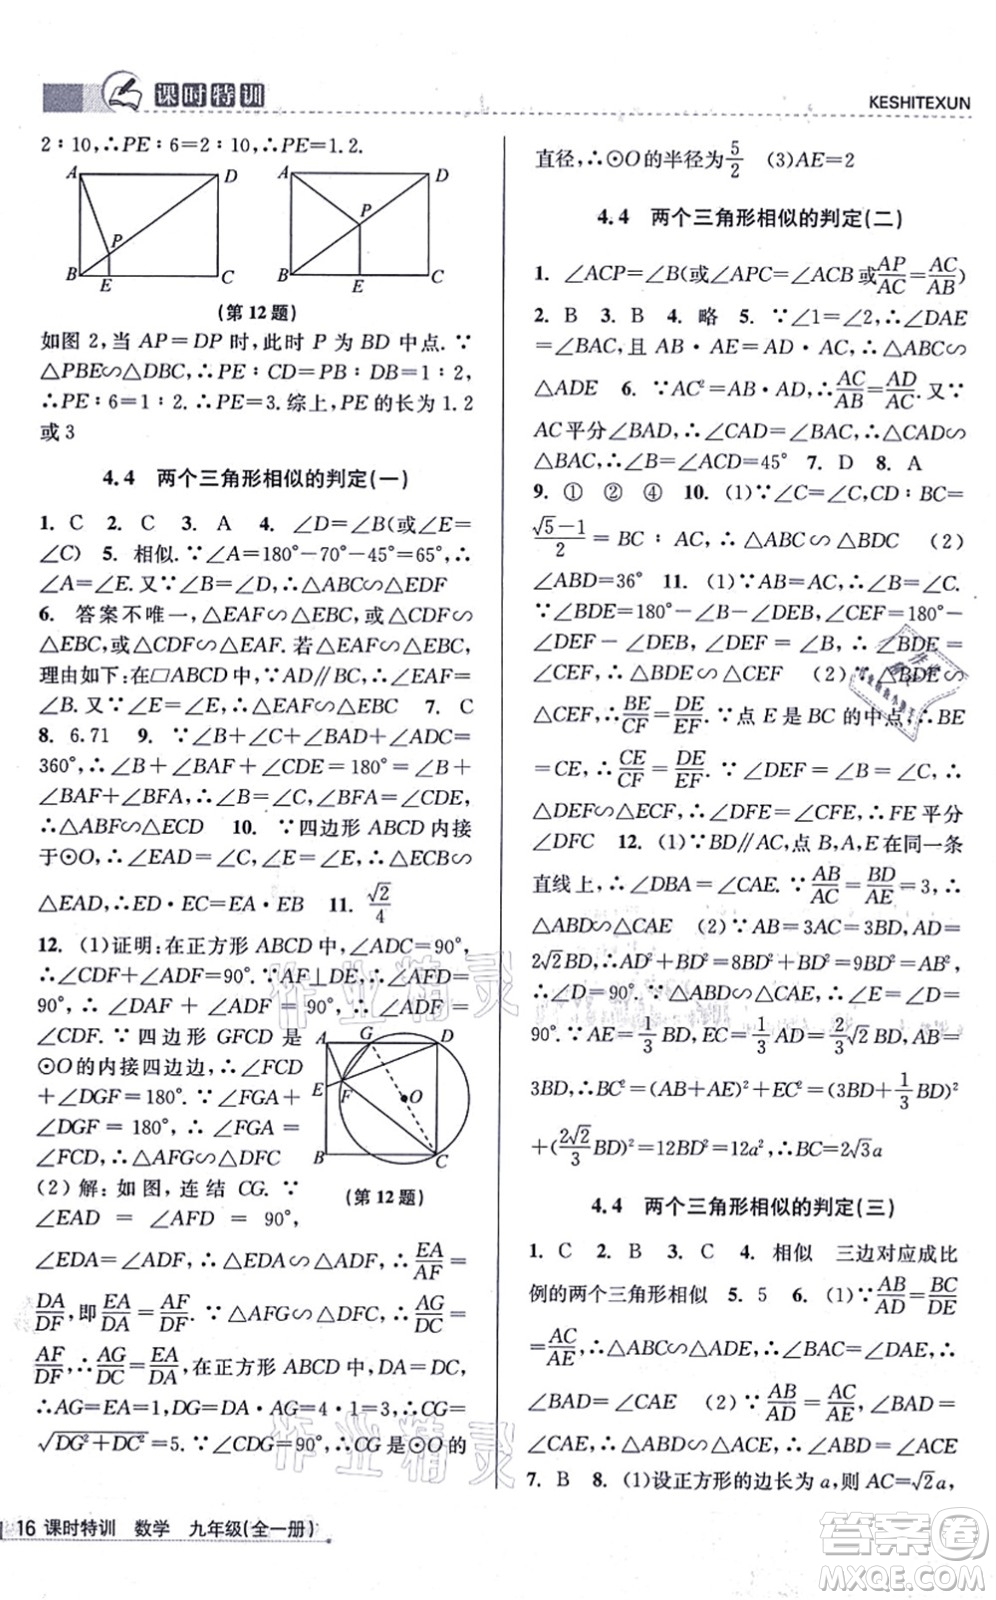 课时特训
KESHITEXUN
2∶10,∴PE∶6=2∶10,∴PE=1.2.
A D A D
P P
B E C B E C
(第12题)
如图2,当AP=DP时,此时P为BD中点.∵
△PBE∽△DBC,∴PE∶CD=PB∶DB=1∶2,
∴PE∶6=1∶2.∴PE=3.综上,PE的长为1.2
或3
4.4 两个三角形相似的判定(一)
1. C 2. C 3. A 4. ∠D=∠B(或∠E=
∠C) 5. 相似.∵∠A=180°-70°-45°=65°,∴
∠A=∠E.又∵∠B=∠D,∴△ABC∽△EDF
6. 答案不唯一,△EAF∽△EBC,或△CDF∽△
EBC,或△CDF∽△EAF.若△EAF∽△EBC,
理由如下:在□ABCD中,∵AD∥BC,∴∠EAF=
∠B.又∵∠E=∠E,∴△EAF∽△EBC 7. C
8. 6.71 9. ∵∠B+∠C+∠BAD+∠ADC=
360°,∴∠B+∠BAF+∠CDE=180°=∠B+
∠BAF+∠BFA,∴∠B=∠C,∠BFA=∠CDE,
∴△ABF∽△ECD 10. ∵四边形ABCD内接
于⊙O,∴∠EAD=∠C,∠E=∠E,∴△BCE∽
△EAD,∴ED·EC=EA·EB 11. √2/4
12. (1)证明:在正方形ABCD中,∠ADC=90°,
∴∠CDF+∠ADF=90°.∵AF⊥DE,∴∠AFD=
90°,∴∠DAF+∠ADF=90°,∴∠DAF=
∠CDF.∵四边形GFCD是
⊙O的内接四边边,∴∠FCD
+∠DGF=180°.∵∠FGA+
∠DGF=180°,∴∠FGA=
∠FCD,∴△AFG∽△DFC
(2)解:如图,连结CG.∵
∠EAD=∠AFD=90°,
A G D
E F O
B C
(第12题)
∠EDA=∠ADF,∴△EDA∽△ADF,∴EA/AF=
DA/DF,即EA/DA=AF/DF.∵△AFG∽△DFC,∴AG/DC=
AF/DF,∴AG/DC=EA/DA,在正方形ABCD中,DA=DC,
∴AG=EA=1,DG=DA-AG=4-1=3,∴CG=
√DG²+DC²=5.∵∠CDG=90°,∴CG是⊙O的
16 课时特训 数学 九年级(全一册)
直径,∴⊙O的半径为5/2 (3)AE=2
4.4 两个三角形相似的判定(二)
1. ∠ACP=∠B(或∠APC=∠ACB或AP/AC=AC/AB)
2. B 3. B 4. 略 5. ∵∠1=∠2,∴∠DAE
=∠BAC,且AB·AE=AD·AC,∴△ABC∽
△ADE 6. ∵AC²=AB·AD,∴AC/AB=AD/AC.又∵
AC平分∠BAD,∴∠BAC=∠CAD,∴△ACD∽
△BAC,∴∠BCD=∠BAC=45° 7. D 8. A
9. ① ② ④ 10. (1)∵∠C=∠C,CD∶BC=
√5-1/2=BC∶AC,∴△ABC∽△BDC (2)
∠ABD=36° 11. (1)∵AB=AC,∴∠B=∠C.
∵∠BDE=180°-∠B-∠DEB,∠CEF=180°-
∠DEF-∠DEB,∠DEF=∠B,∴∠BDE=
∠CEF,∴△BDE∽△CEF (2)∵△BDE∽
△CEF,∴BE/CF=DE/EF.∵点E是BC的中点,∴BE
=CE,∴CE/CF=DE/EF.∵∠DEF=∠B=∠C,∴
△DEF∽△ECF,∴∠DFE=∠CFE,∴FE平分
∠DFC 12. (1)∵BD∥AC,点B,A,E在同一条
直线上,∴∠DBA=∠CAE.∵AB/AC=BD/AE=3,∴
△ABD∽△CAE (2)∵AB=3AC=3BD,AD=
2√2BD,∴AD²+BD²=8BD²+BD²=9BD²=AB²,
∴∠D=90°.∵△ABD∽△CAE,∴∠E=∠D=
90°.∵AE=1/3BD,EC=1/3AD=2/3√2BD,AB=
3BD,∴BC²=(AB+AE)²+EC²=(3BD+1/3BD)²
+(2√2/3BD)²=12BD²=12a²,∴BC=2√3a
4.4 两个三角形相似的判定(三)
1. C 2. B 3. C 4. 相似 三边对应成比
例的两个三角形相似 5. 5 6. (1)∵AB/AD=BC/DE
=AC/AE,∴△ABC∽△ADE,∴∠BAC=∠DAE,∴
∠BAD=∠CAE (2)∵AB/AD=AC/AE=AC/AE,
∠BAD=∠CAE,∴△ABD∽△ACE
7. B 8. (1)设正方形的边长为a,则AC=√2a,
作业精灵
作业精灵
答案圈
MXQE.COM